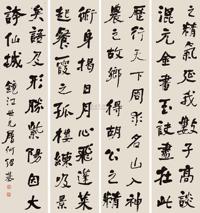 之精氣延我數子高談
混元金書玉訣盡在此
歷行天下周求名山入神
農之故鄉得胡公之精
術身揭日月心飛蓬萊
起餐霞之孤樓練吸景
矣語及形勝紫陽因大
誇仙城
鏡江世兄屬何紹基